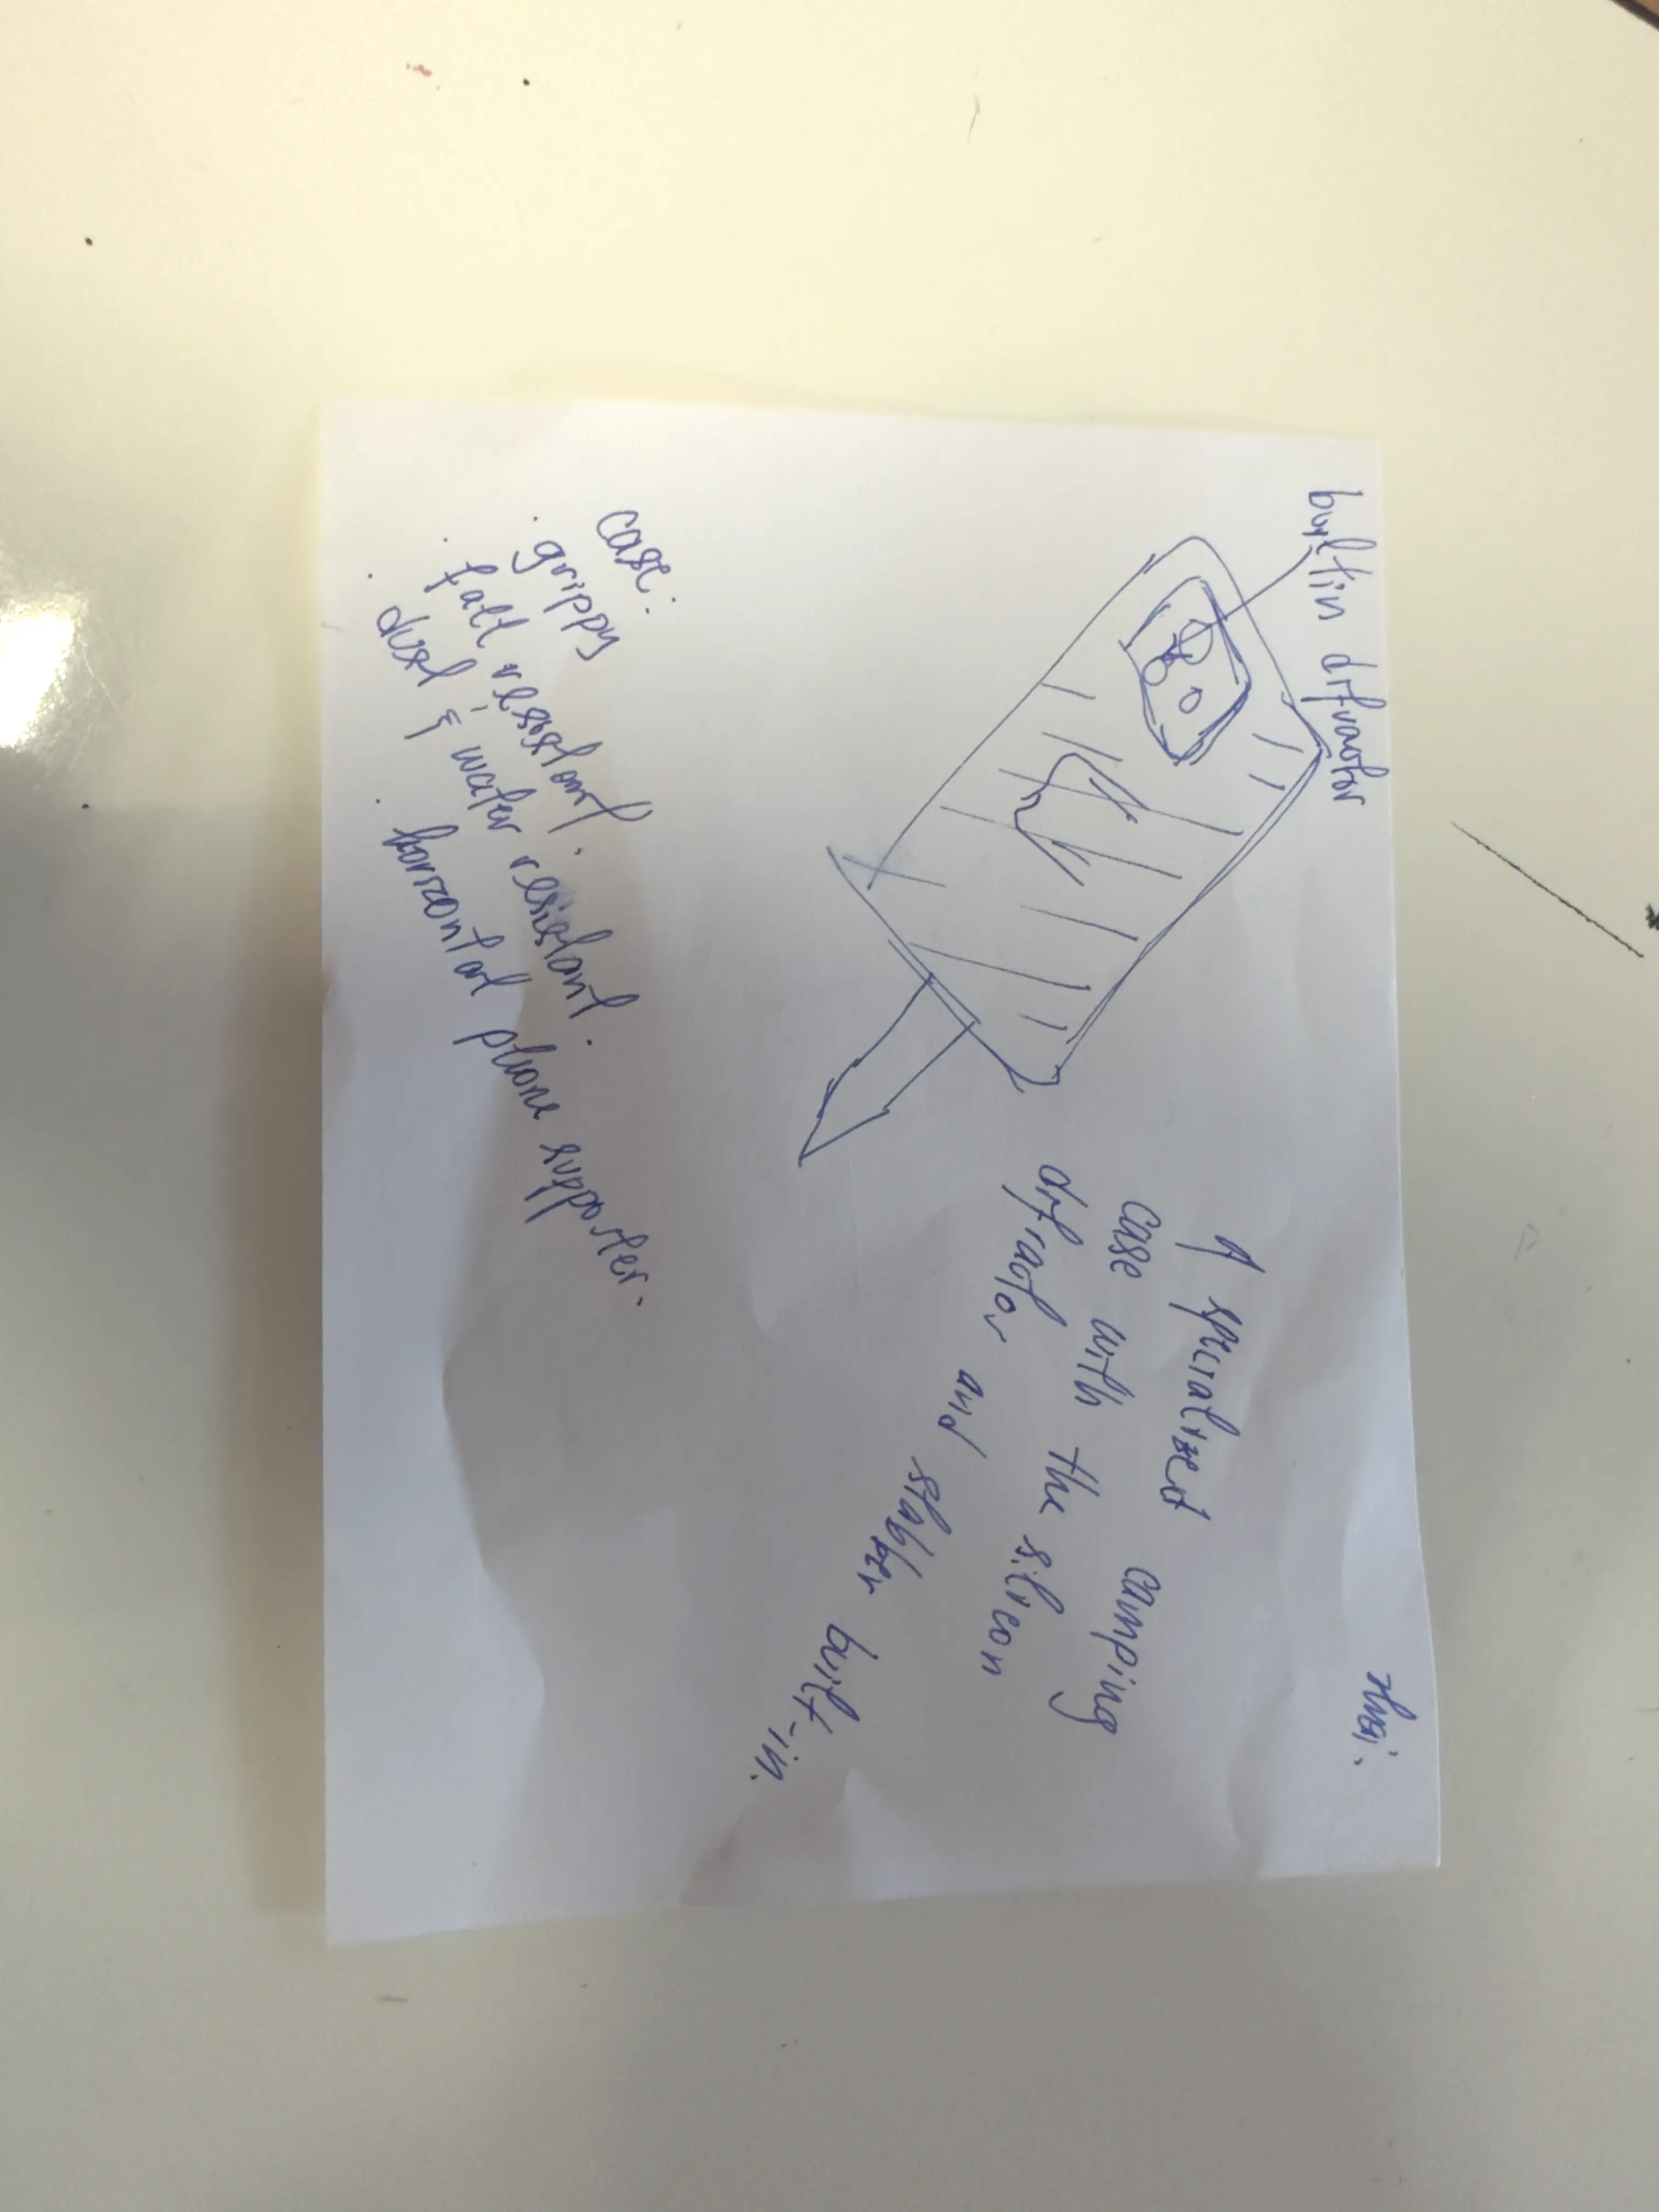 thai.
builtin difractor
A specialized camping
case with the silicon
difractor and stabber built-in.
case:
· grippy
· fall resistant.
· dust & water resistant.
· horizontal phone supporter.